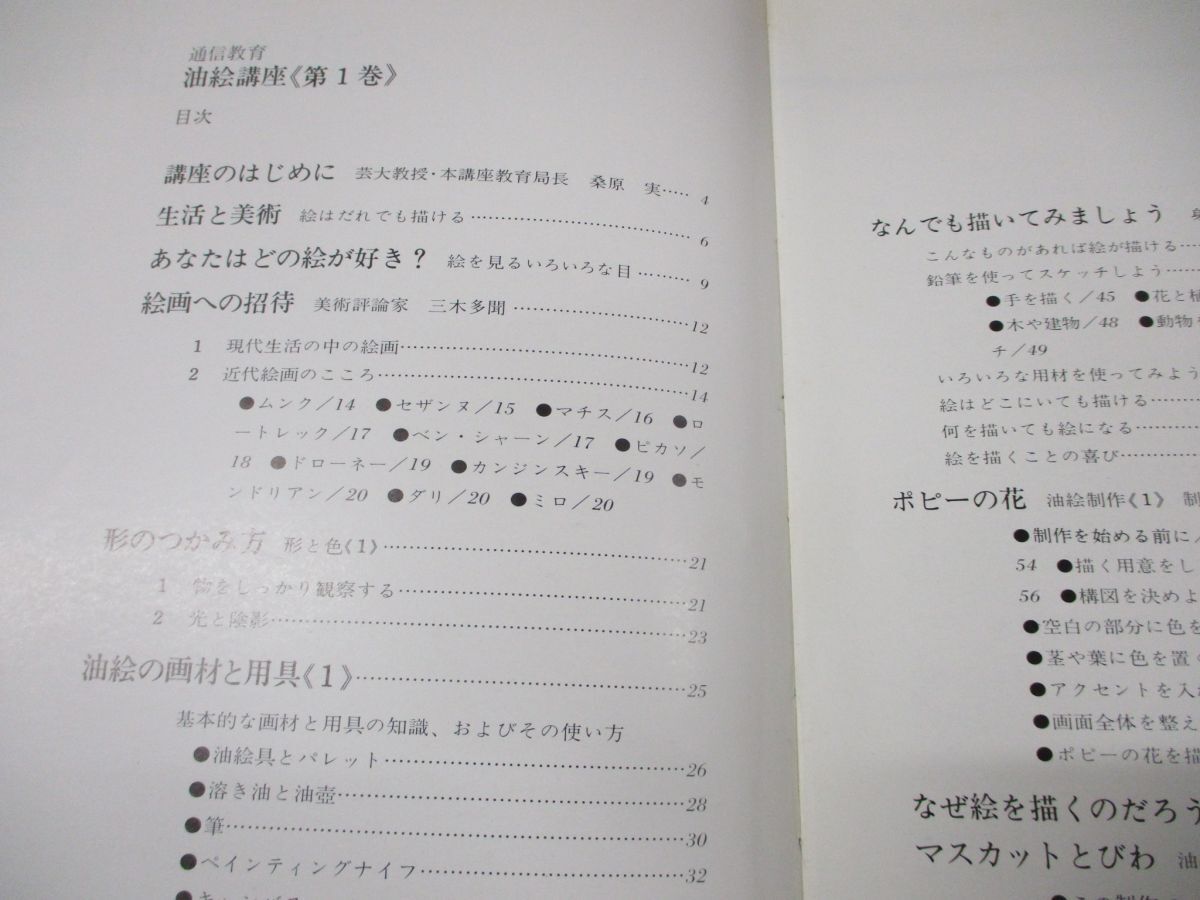 通信教育
油絵講座《第1巻》
目次
講座のはじめに 芸大教授・本講座教育局長 桑原 実…… 4
生活と美術 絵はだれでも描ける…… 6
あなたはどの絵が好き? 絵を見るいろいろな目…… 9
絵画への招待 美術評論家 三木多聞…… 12
1 現代生活の中の絵画…… 12
2 近代絵画のこころ…… 14
●ムンク/14 ●セザンヌ/15 ●マチス/16 ●ロ
ートレック/17 ●ベン・シャーン/17 ●ピカソ/
18 ●ドローネー/19 ●カンジンスキー/19 ●モ
ンドリアン/20 ●ダリ/20 ●ミロ/20
形のつかみ方 形と色《1》…… 21
1 物をしっかり観察する…… 21
2 光と陰影…… 23
油絵の画材と用具《1》…… 25
基本的な画材と用具の知識、およびその使い方
●油絵具とパレット…… 26
●溶き油と油壺…… 28
●筆…… 30
●ペインティングナイフ…… 32
なんでも描いてみましょう
こんなものがあれば絵が描ける……
鉛筆を使ってスケッチしよう……
●手を描く/45 ●花と
●木や建物/48 ●動物
チ/49
いろいろな用材を使ってみよう
絵はどこにいても描ける……
何を描いても絵になる……
絵を描くことの喜び……
ポピーの花 油絵制作《1》 制
●制作を始める前に/
54 ●描く用意をし
56 ●構図を決めよ
●空白の部分に色を
●茎や葉に色を置く
●アクセントを入
●画面全体を整え
●ポピーの花を描
なぜ絵を描くのだろう
マスカットとびわ 油